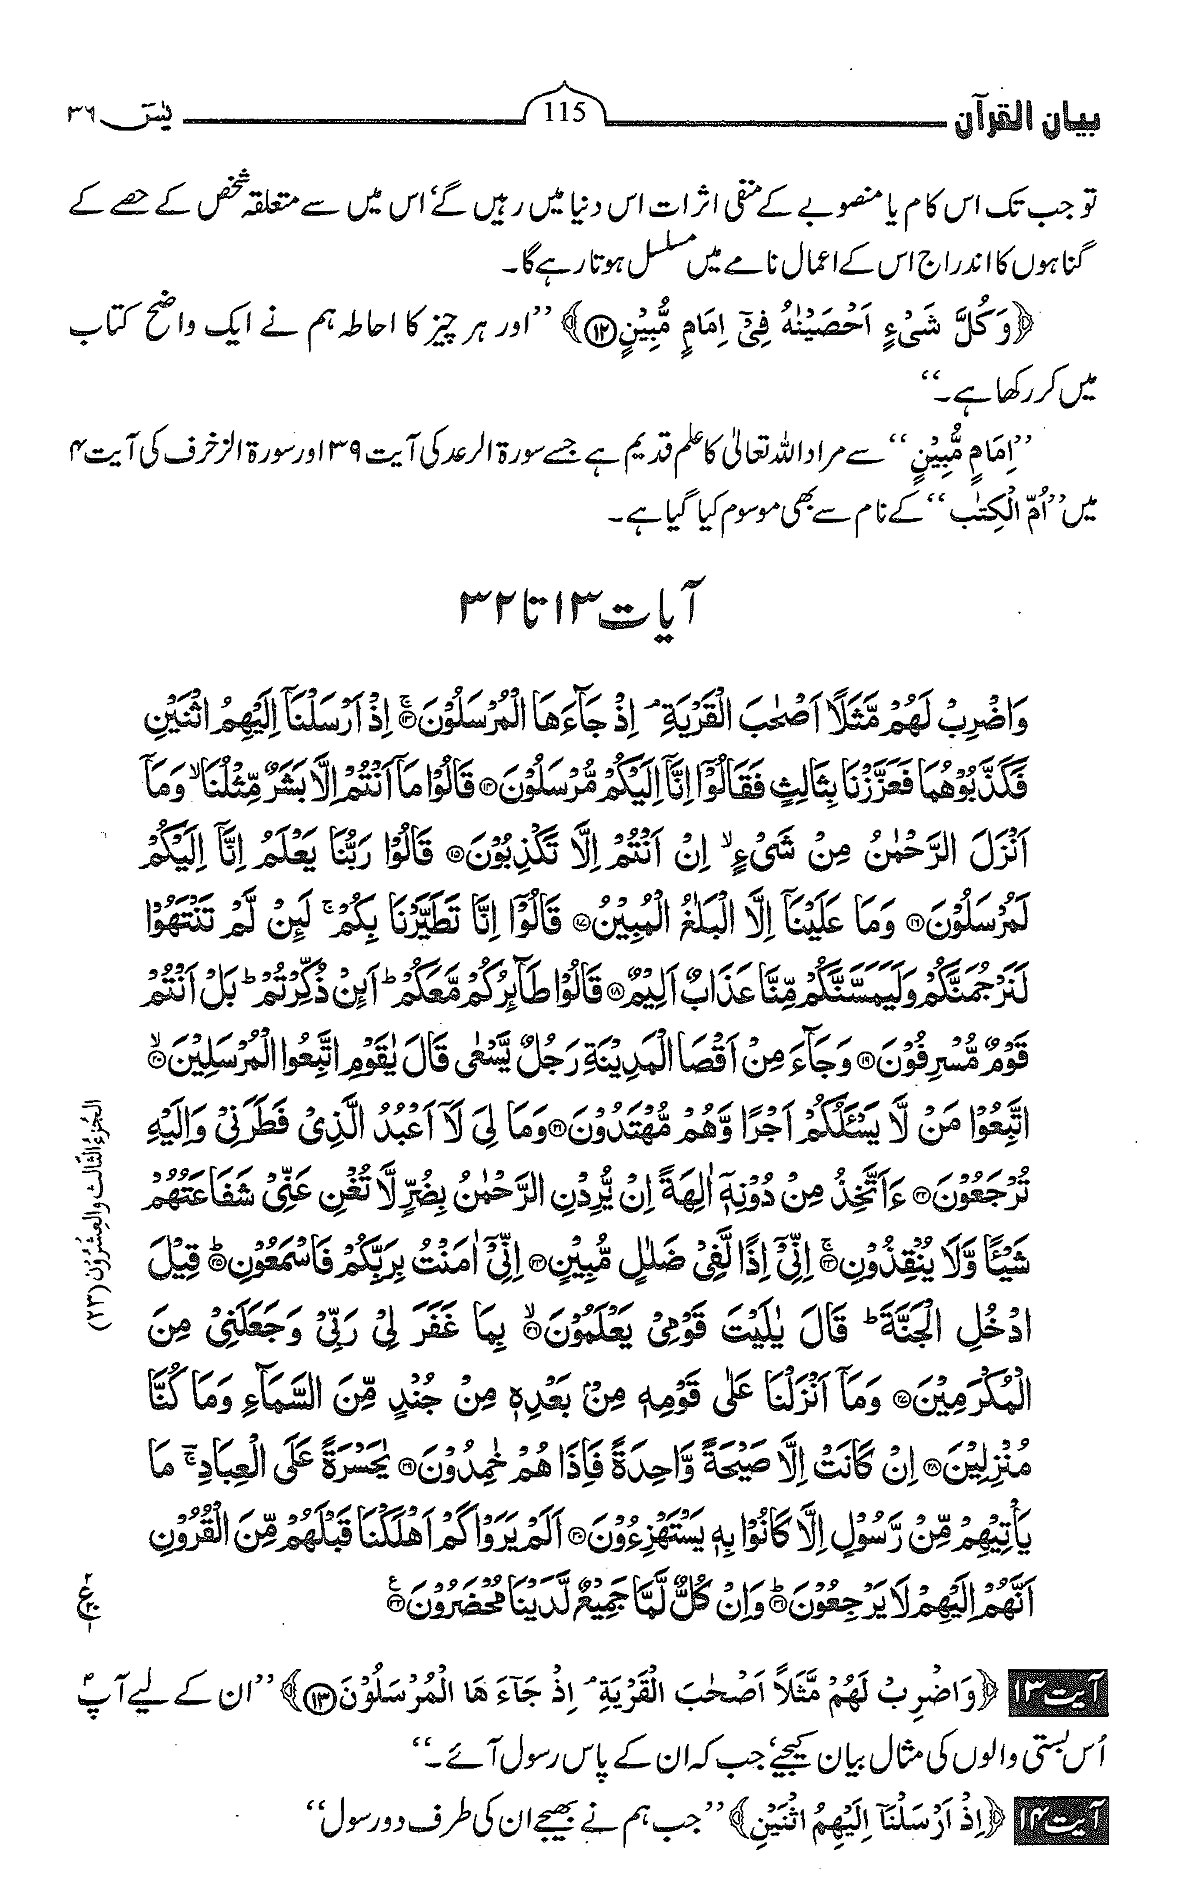 بیان القرآن 115 یٰسٓ ۳۶
تو جب تک اس کام یا منصوبے کے منفی اثرات اس دنیا میں رہیں گے‘ اس میں سے متعلقہ شخص کے حصے کے
گناہوں کا اندراج اس کے اعمال نامے میں مسلسل ہوتا رہے گا۔
﴿وَكُلَّ شَیْءٍ اَحْصَیْنٰهُ فِیْۤ اِمَامٍ مُّبِیْنٍ﴿۱۲﴾﴾ ’’اور ہر چیز کا احاطہ ہم نے ایک واضح کتاب
میں کر رکھا ہے۔‘‘
’’اِمَامٍ مُّبِیْنٍ‘‘ سے مراد اللہ تعالیٰ کا علم قدیم ہے جسے سورۃ الرعد کی آیت ۳۹ اور سورۃ الزخرف کی آیت ۴
میں ’’اُمّ الْکِتٰب‘‘ کے نام سے بھی موسوم کیا گیا ہے۔
آیات ۱۳ تا ۳۲
وَاضْرِبْ لَهُمْ مَّثَلًا اَصْحٰبَ الْقَرْیَةِ ۘ اِذْ جَآءَهَا الْمُرْسَلُوْنَ ﴿۱۳﴾ۚ اِذْ اَرْسَلْنَاۤ اِلَیْهِمُ اثْنَیْنِ
فَكَذَّبُوْهُمَا فَعَزَّزْنَا بِثَالِثٍ فَقَالُوْۤا اِنَّاۤ اِلَیْكُمْ مُّرْسَلُوْنَ ﴿۱۴﴾ قَالُوْا مَاۤ اَنْتُمْ اِلَّا بَشَرٌ مِّثْلُنَا ۙ وَمَاۤ
اَنْزَلَ الرَّحْمٰنُ مِنْ شَیْءٍ ۙ اِنْ اَنْتُمْ اِلَّا تَكْذِبُوْنَ ﴿۱۵﴾ قَالُوْا رَبُّنَا یَعْلَمُ اِنَّاۤ اِلَیْكُمْ
لَمُرْسَلُوْنَ ﴿۱۶﴾ وَمَا عَلَیْنَاۤ اِلَّا الْبَلٰغُ الْمُبِیْنُ ﴿۱۷﴾ قَالُوْۤا اِنَّا تَطَیَّرْنَا بِكُمْ ۚ لَىِٕنْ لَّمْ تَنْتَهُوْا
لَنَرْجُمَنَّكُمْ وَلَیَمَسَّنَّكُمْ مِّنَّا عَذَابٌ اَلِیْمٌ ﴿۱۸﴾ قَالُوْا طَآىِٕرُكُمْ مَّعَكُمْ ؕ اَىِٕنْ ذُكِّرْتُمْ ؕ بَلْ اَنْتُمْ
قَوْمٌ مُّسْرِفُوْنَ ﴿۱۹﴾ وَجَآءَ مِنْ اَقْصَا الْمَدِیْنَةِ رَجُلٌ یَّسْعٰی قَالَ یٰقَوْمِ اتَّبِعُوا الْمُرْسَلِیْنَ ﴿۲۰﴾ۙ
اتَّبِعُوْا مَنْ لَّا یَسْـَٔلُكُمْ اَجْرًا وَّهُمْ مُّهْتَدُوْنَ ﴿۲۱﴾ وَمَا لِیَ لَاۤ اَعْبُدُ الَّذِیْ فَطَرَنِیْ وَاِلَیْهِ
تُرْجَعُوْنَ ﴿۲۲﴾ ءَاَتَّخِذُ مِنْ دُوْنِهٖۤ اٰلِهَةً اِنْ یُّرِدْنِ الرَّحْمٰنُ بِضُرٍّ لَّا تُغْنِ عَنِّیْ شَفَاعَتُهُمْ
شَیْـًٔا وَّلَا یُنْقِذُوْنِ ﴿۲۳﴾ۚ اِنِّیْۤ اِذًا لَّفِیْ ضَلٰلٍ مُّبِیْنٍ ﴿۲۴﴾ اِنِّیْۤ اٰمَنْتُ بِرَبِّكُمْ فَاسْمَعُوْنِ ﴿۲۵﴾ؕ قِیْلَ
ادْخُلِ الْجَنَّةَ ؕ قَالَ یٰلَیْتَ قَوْمِیْ یَعْلَمُوْنَ ﴿۲۶﴾ۙ بِمَا غَفَرَ لِیْ رَبِّیْ وَجَعَلَنِیْ مِنَ
الْمُكْرَمِیْنَ ﴿۲۷﴾ وَمَاۤ اَنْزَلْنَا عَلٰی قَوْمِهٖ مِنْۢ بَعْدِهٖ مِنْ جُنْدٍ مِّنَ السَّمَآءِ وَمَا كُنَّا
مُنْزِلِیْنَ ﴿۲۸﴾ اِنْ كَانَتْ اِلَّا صَیْحَةً وَّاحِدَةً فَاِذَا هُمْ خٰمِدُوْنَ ﴿۲۹﴾ یٰحَسْرَةً عَلَی الْعِبَادِ ۚ مَا
یَاْتِیْهِمْ مِّنْ رَّسُوْلٍ اِلَّا كَانُوْا بِهٖ یَسْتَهْزِءُوْنَ ﴿۳۰﴾ اَلَمْ یَرَوْا كَمْ اَهْلَكْنَا قَبْلَهُمْ مِّنَ الْقُرُوْنِ
اَنَّهُمْ اِلَیْهِمْ لَا یَرْجِعُوْنَ ﴿۳۱﴾ؕ وَاِنْ كُلٌّ لَّمَّا جَمِیْعٌ لَّدَیْنَا مُحْضَرُوْنَ ﴿۳۲﴾ع
الجُزءُ الثّالث والعِشْرُوْن (۲۳)
ع
آیت ۱۳ ﴿وَاضْرِبْ لَهُمْ مَّثَلًا اَصْحٰبَ الْقَرْیَةِ ۘ اِذْ جَآءَ هَا الْمُرْسَلُوْنَ﴿۱۳﴾﴾ ’’ان کے لیے آپؐ
اُس بستی والوں کی مثال بیان کیجیے‘ جب کہ ان کے پاس رسول آئے۔‘‘
آیت ۱۴ ﴿اِذْ اَرْسَلْنَاۤ اِلَیْهِمُ اثْنَیْنِ﴾ ’’جب ہم نے بھیجے ان کی طرف دو رسول‘‘